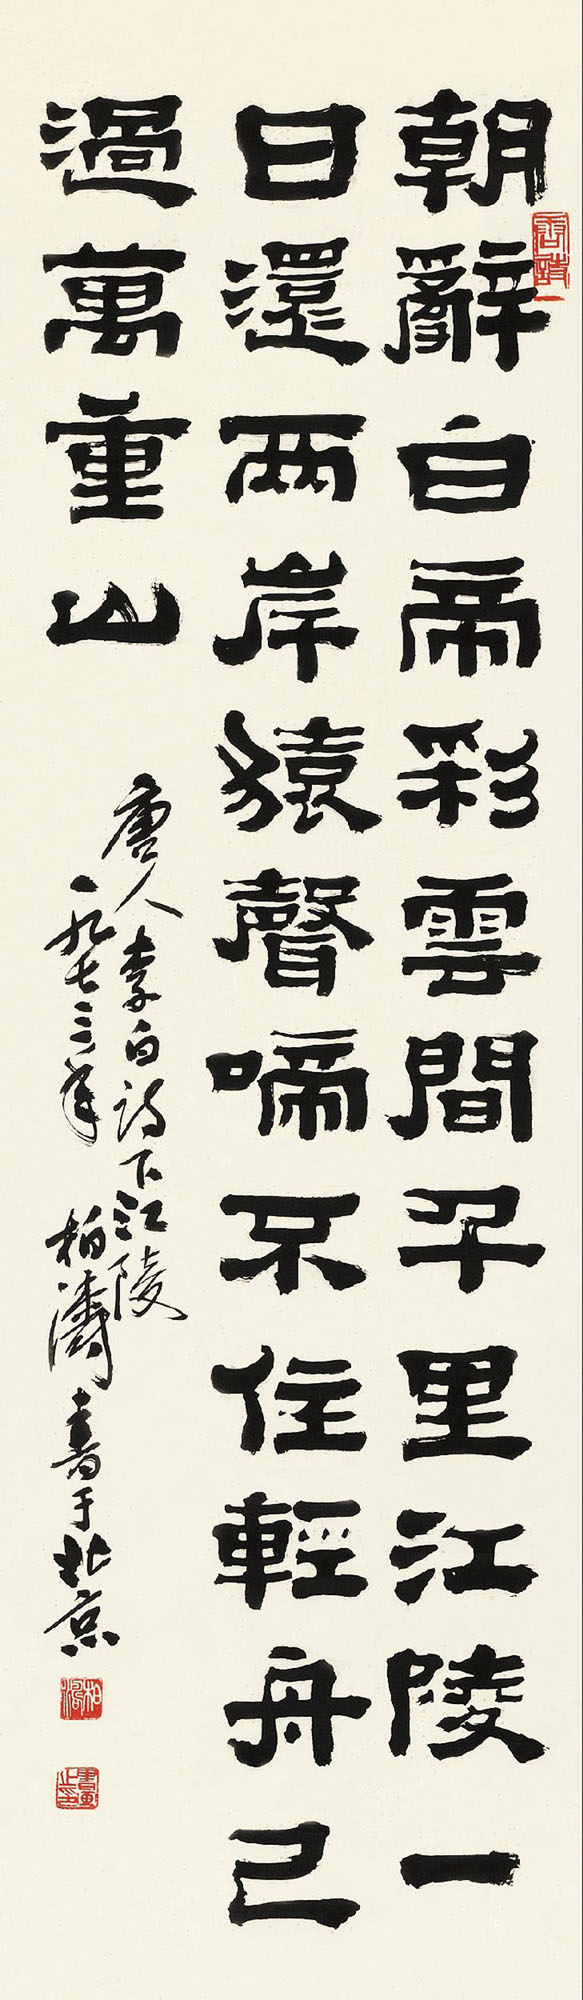 朝辭白帝彩雲間千里江陵一
日還两岸猿聲啼不住輕舟已
過萬重山
唐人李白詩下江陵
一九七三年柏濤書于北京